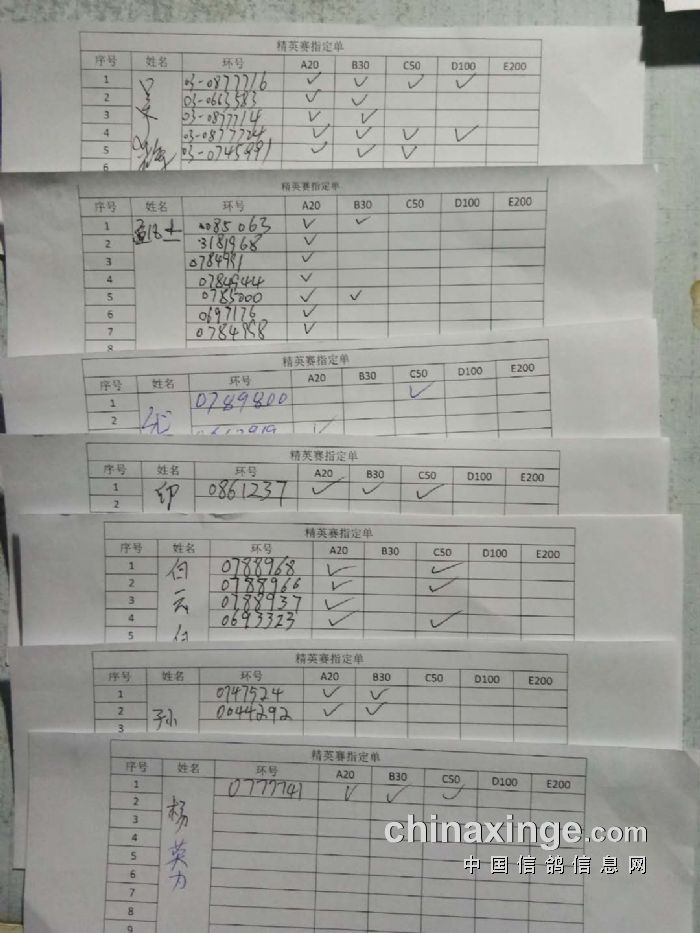 精英赛指定单
序号 姓名 环号 A20 B30 C50 D100 E200
1 03-0877716 ✓ ✓ ✓ ✓
2 03-0663583 ✓ ✓
3 03-087714 ✓ ✓
4 03-0877724 ✓ ✓ ✓ ✓
5 03-0745991 ✓ ✓ ✓
6
精英赛指定单
序号 姓名 环号 A20 B30 C50 D100 E200
1 085063 ✓ ✓
2 3181968 ✓
3 0784991 ✓
4 0784944 ✓
5 0785000 ✓ ✓
6 0697176 ✓
7 0784998 ✓
8
精英赛指定单
序号 姓名 环号 A20 B30 C50 D100 E200
1 0789800 ✓
2 ✓
精英赛指定单
序号 姓名 环号 A20 B30 C50 D100 E200
1 印 0861237 ✓ ✓ ✓
2
精英赛指定单
序号 姓名 环号 A20 B30 C50 D100 E200
1 付 0788968 ✓ ✓
2 云 0788966 ✓ ✓
3 0788937 ✓
4 0693323 ✓ ✓
5
精英赛指定单
序号 姓名 环号 A20 B30 C50 D100 E200
1 0747524 ✓ ✓
2 孙 0044292 ✓ ✓
3
精英赛指定单
序号 姓名 环号 A20 B30 C50 D100 E200
1 杨英力 0777741 ✓ ✓ ✓
2
3
4
5
6
7
8
9
chinaxinge.com
中国信鸽信息网